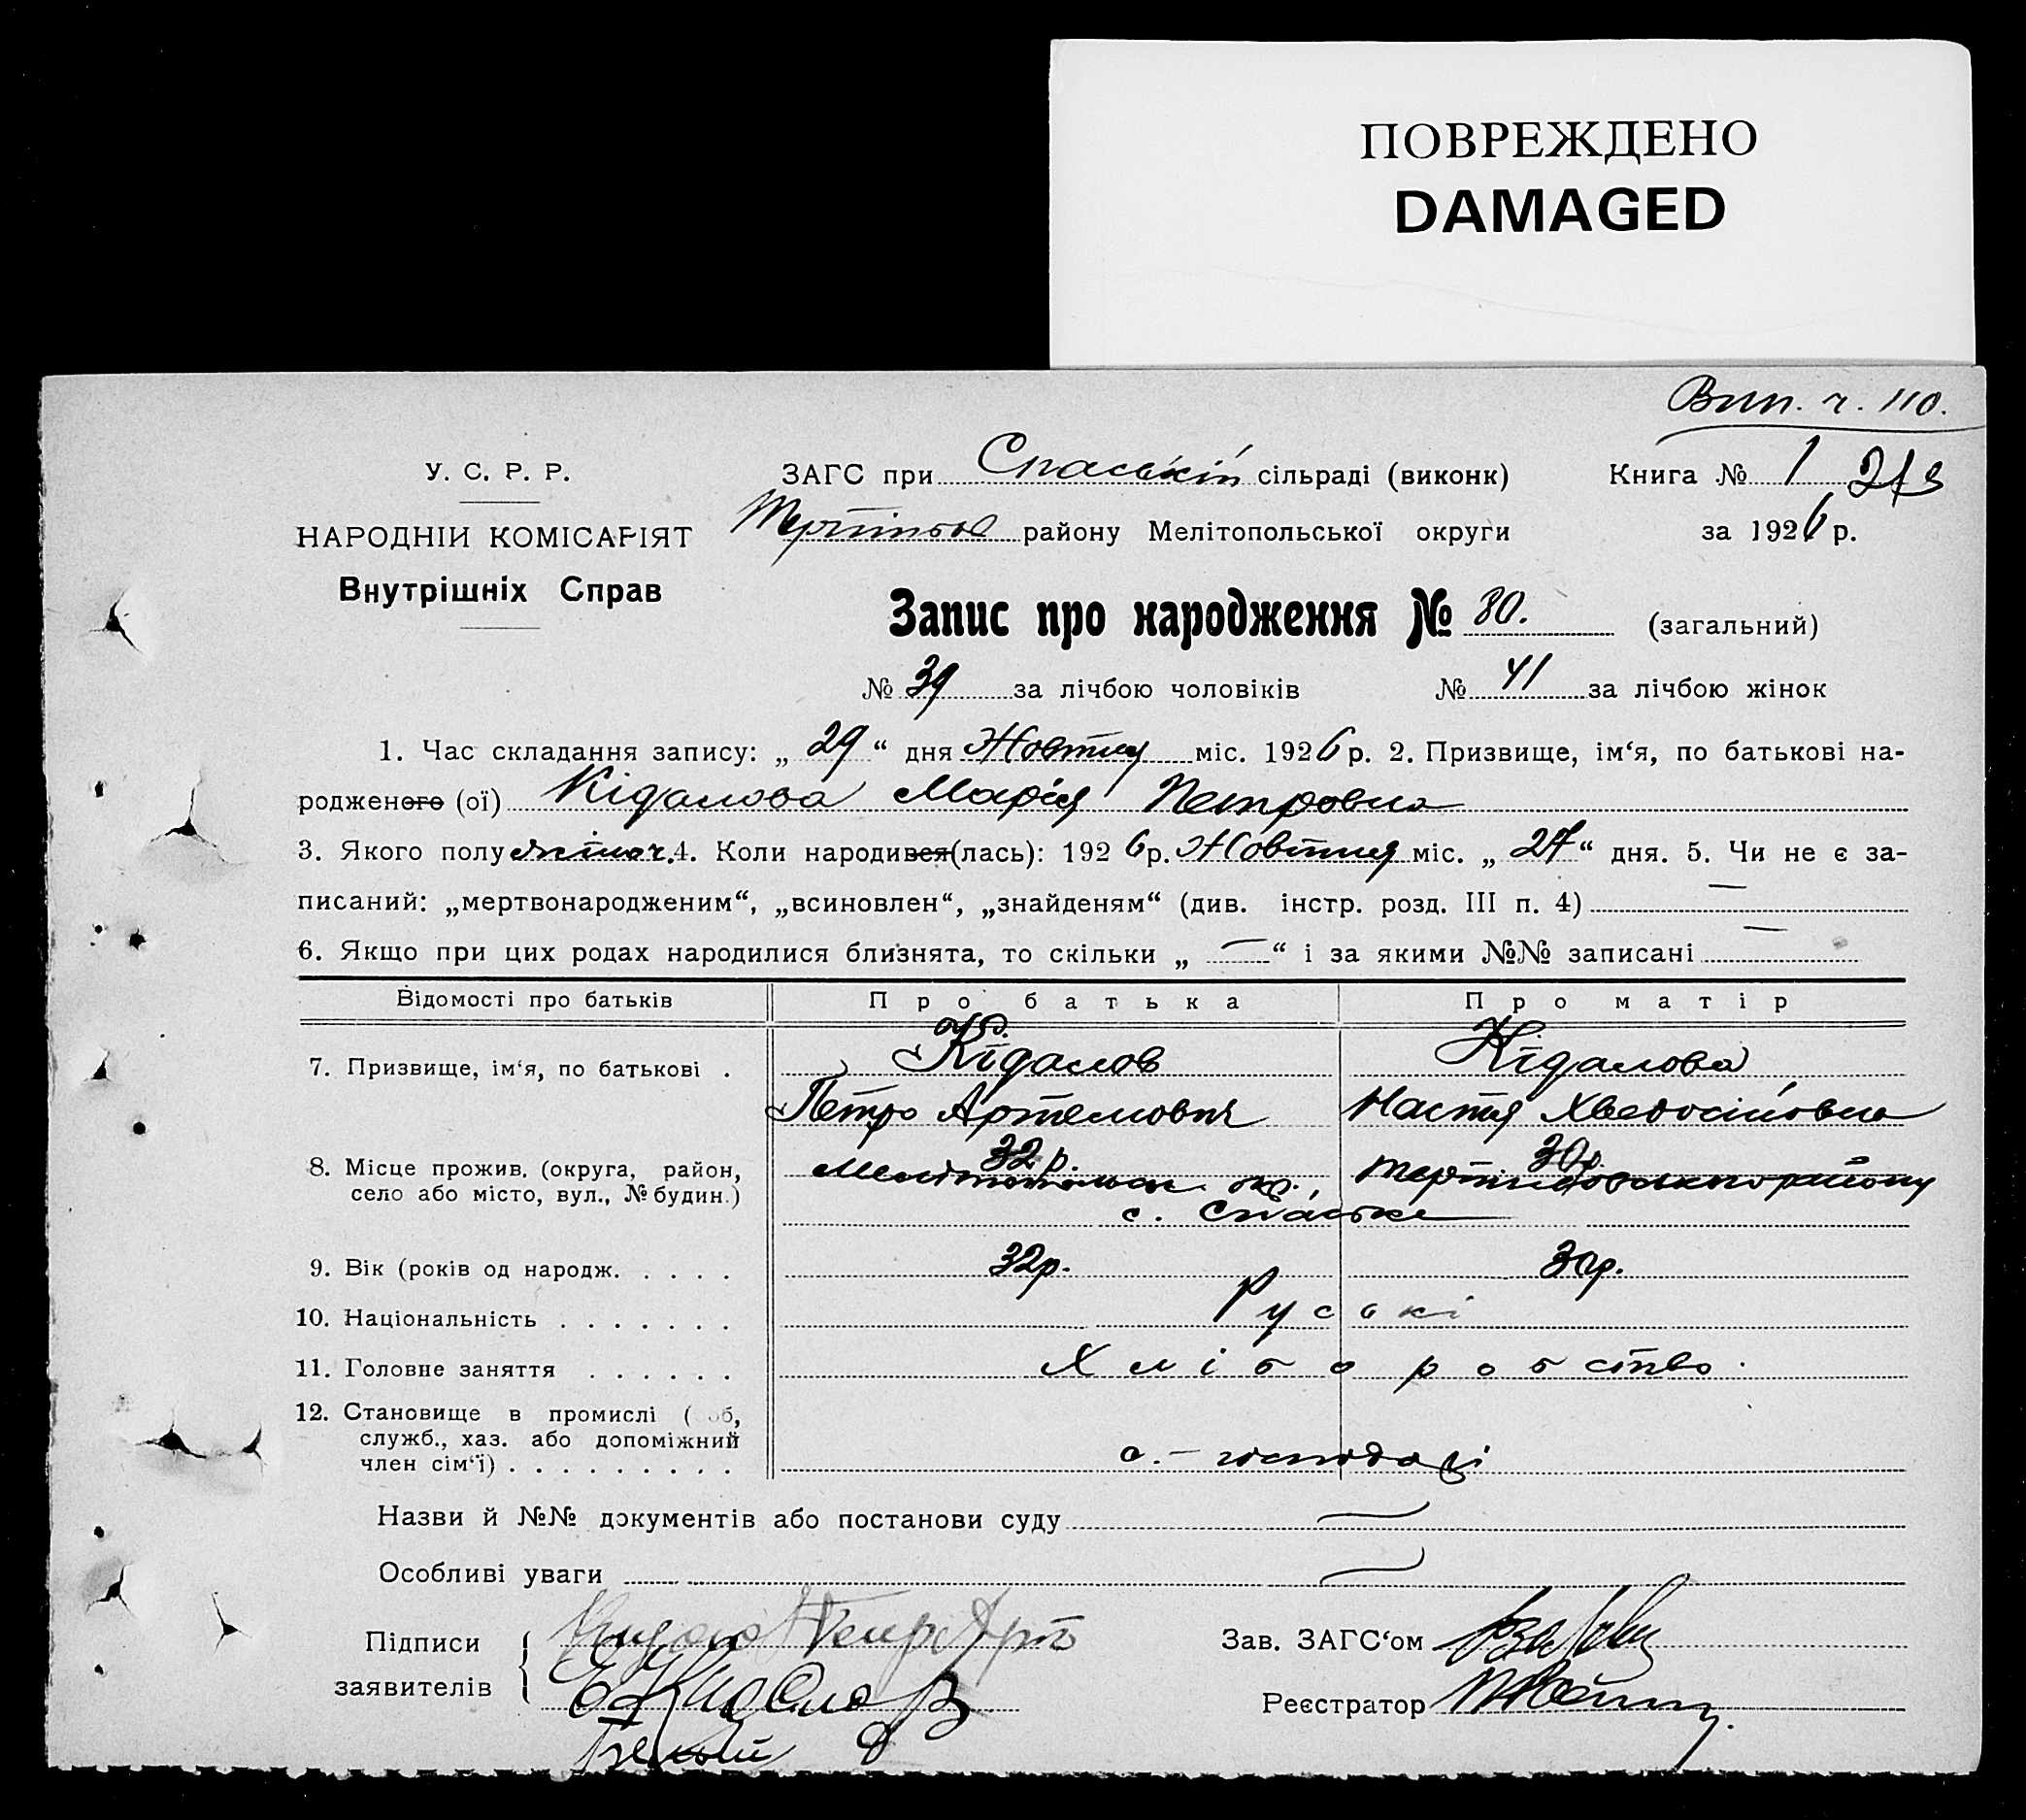 ПОВРЕЖДЕНО
DAMAGED
Вип. ч. 110.
У. С. Р. Р.
ЗАГС при Спаській сільраді (виконк)
Книга № 1
НАРОДНІЙ КОМІСАРІЯТ
району Мелітопольської округи
за 1926 р.
Внутрішніх Справ
Запис про народження № 80. (загальний)
№ 39 за лічбою чоловіків № 41 за лічбою жінок
1. Час складання запису: „ 29 “ дня Жовтня міс. 1926 р. 2. Призвище, ім‘я, по батькові на-
родженого (ої) Кідалова Марія Петровна
3. Якого полу жіноч. 4. Коли народився (лась): 1926 р. Жовтня міс. „ 27 “ дня. 5. Чи не є за-
писаний: „мертвонародженим“, „всиновлен“, „знайденям“ (див. інстр. розд. III п. 4) —
6. Якщо при цих родах народилися близнята, то скільки „ — “ і за якими №№ записані —
Відомості про батьків Про батька Про матір
7. Призвище, ім‘я, по батькові . Кідалов Кідалова
Петро Артемович Настя Хведосіївна
32 р. 30 р.
8. Місце прожив. (округа, район, Мелітопольськ. окр.
село або місто, вул., № будин.) с. Спаське
9. Вік (років од народж. . . . . 32 р. 30 р.
10. Національність . . . . . . . Руські
11. Головне заняття . . . . . . Хліборобство.
12. Становище в промислі ( об,
служб., хаз. або допоміжний
член сім‘ї) . . . . . . . . . господарі
Назви й №№ документів або постанови суду —
Особливі уваги —
Підписи
Зав. ЗАГС‘ом
заявителів
Реєстратор